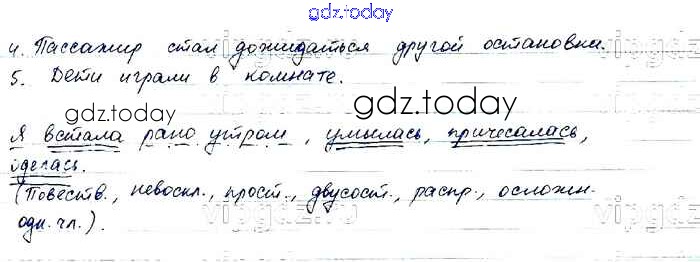 gdz.today
4. Пассажир стал дожидаться другой остановки.
5. Дети играли в комнате.
gdz.today gdz.today
Я встала рано утром, умылась, причесалась,
оделась.
(Повеств., невоскл., прост., двусост., распр., осложн.
одн. чл.).